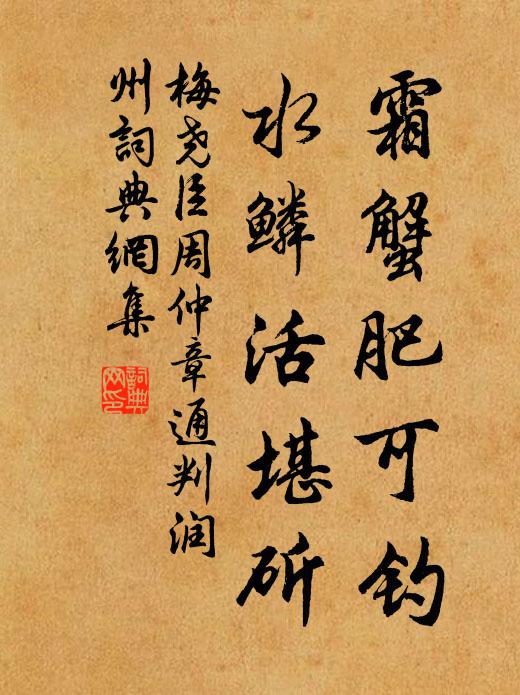 霜蟹肥可钓
水鳞活堪斫
梅尧臣周仲章通判润
州詞典網集
詞典网印